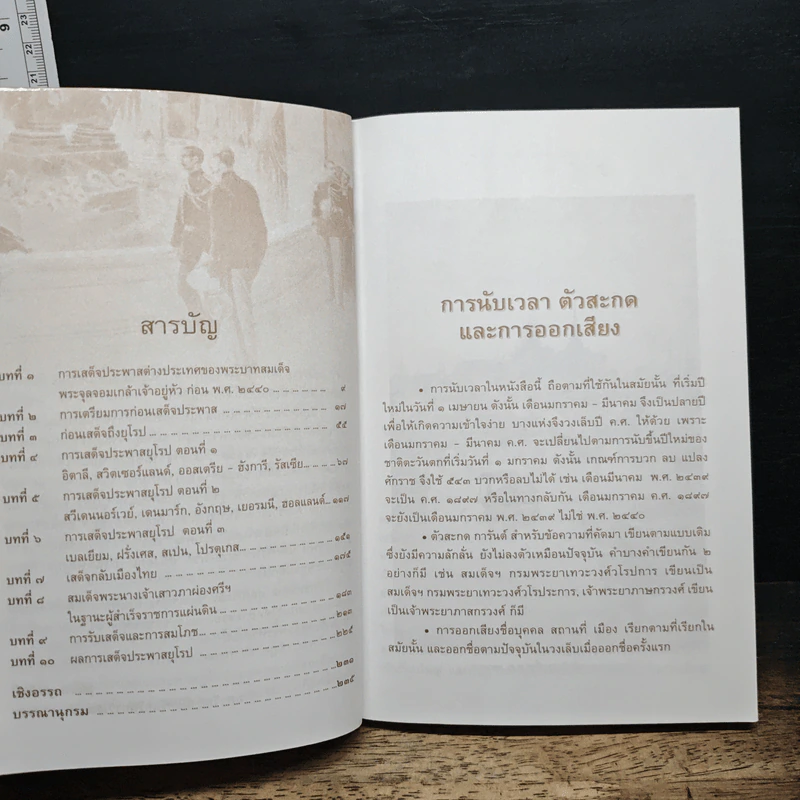 9
23
22
21
สารบัญ
บทที่ ๑ การเสด็จประพาสต่างประเทศของพระบาทสมเด็จ
พระจุลจอมเกล้าเจ้าอยู่หัว ก่อน พ.ศ. ๒๔๔๐ ... ๙
บทที่ ๒ การเตรียมการก่อนเสด็จประพาส ... ๑๗
บทที่ ๓ ก่อนเสด็จถึงยุโรป ... ๕๕
บทที่ ๔ การเสด็จประพาสยุโรป ตอนที่ ๑
อิตาลี, สวิตเซอร์แลนด์, ออสเตรีย - ฮังการี, รัสเซีย... ๖๗
บทที่ ๕ การเสด็จประพาสยุโรป ตอนที่ ๒
สวีเดนนอร์เวย์, เดนมาร์ก, อังกฤษ, เยอรมนี, ฮอลแลนด์... ๑๑๗
บทที่ ๖ การเสด็จประพาสยุโรป ตอนที่ ๓
เบลเยียม, ฝรั่งเศส, สเปน, โปรตุเกส... ๑๕๑
บทที่ ๗ เสด็จกลับเมืองไทย ... ๑๗๕
บทที่ ๘ สมเด็จพระนางเจ้าเสาวภาผ่องศรีฯ
ในฐานะผู้สำเร็จราชการแผ่นดิน ... ๑๘๓
บทที่ ๙ การรับเสด็จและการสมโภช... ๒๑๓
บทที่ ๑๐ ผลการเสด็จประพาสยุโรป ... ๒๒๕
เชิงอรรถ ... ๒๓๑
บรรณานุกรม ... ๒๓๕
การนับเวลา ตัวสะกด
และการออกเสียง
• การนับเวลาในหนังสือนี้ ถือตามที่ใช้กันในสมัยนั้น ที่เริ่มปี
ใหม่ในวันที่ ๑ เมษายน ดังนั้น เดือนมกราคม - มีนาคม จึงเป็นปลายปี
เพื่อให้เกิดความเข้าใจง่าย บางแห่งจึงวงเล็บปี ค.ศ. ให้ด้วย เพราะ
เดือนมกราคม - มีนาคม ค.ศ. จะเปลี่ยนไปตามการนับขึ้นปีใหม่ของ
ชาติตะวันตกที่เริ่มวันที่ ๑ มกราคม ดังนั้น เกณฑ์การบวก ลบ แปลง
ศักราช จึงใช้ ๕๔๓ บวกหรือลบไม่ได้ เช่น เดือนมีนาคม พ.ศ. ๒๔๓๙
จะเป็น ค.ศ. ๑๘๙๗ หรือในทางกลับกัน เดือนมกราคม ค.ศ. ๑๘๙๗
จะยังเป็นเดือนมกราคม พ.ศ. ๒๔๓๙ ไม่ใช่ พ.ศ. ๒๔๔๐
• ตัวสะกด การันต์ สำหรับข้อความที่คัดมา เขียนตามแบบเดิม
ซึ่งยังมีความลักลั่น ยังไม่ลงตัวเหมือนปัจจุบัน คำบางคำเขียนกัน ๒
อย่างก็มี เช่น สมเด็จฯ กรมพระยาเทวะวงศ์วโรปการ เขียนเป็น
สมเด็จฯ กรมพระยาเทวะวงศ์วโรประการ, เจ้าพระยาภาษกรวงศ์ เขียน
เป็นเจ้าพระยาภาสกรวงศ์ ก็มี
• การออกเสียงชื่อบุคคล สถานที่ เมือง เรียกตามที่เรียกใน
สมัยนั้น และออกชื่อตามปัจจุบันในวงเล็บเมื่อออกชื่อครั้งแรก